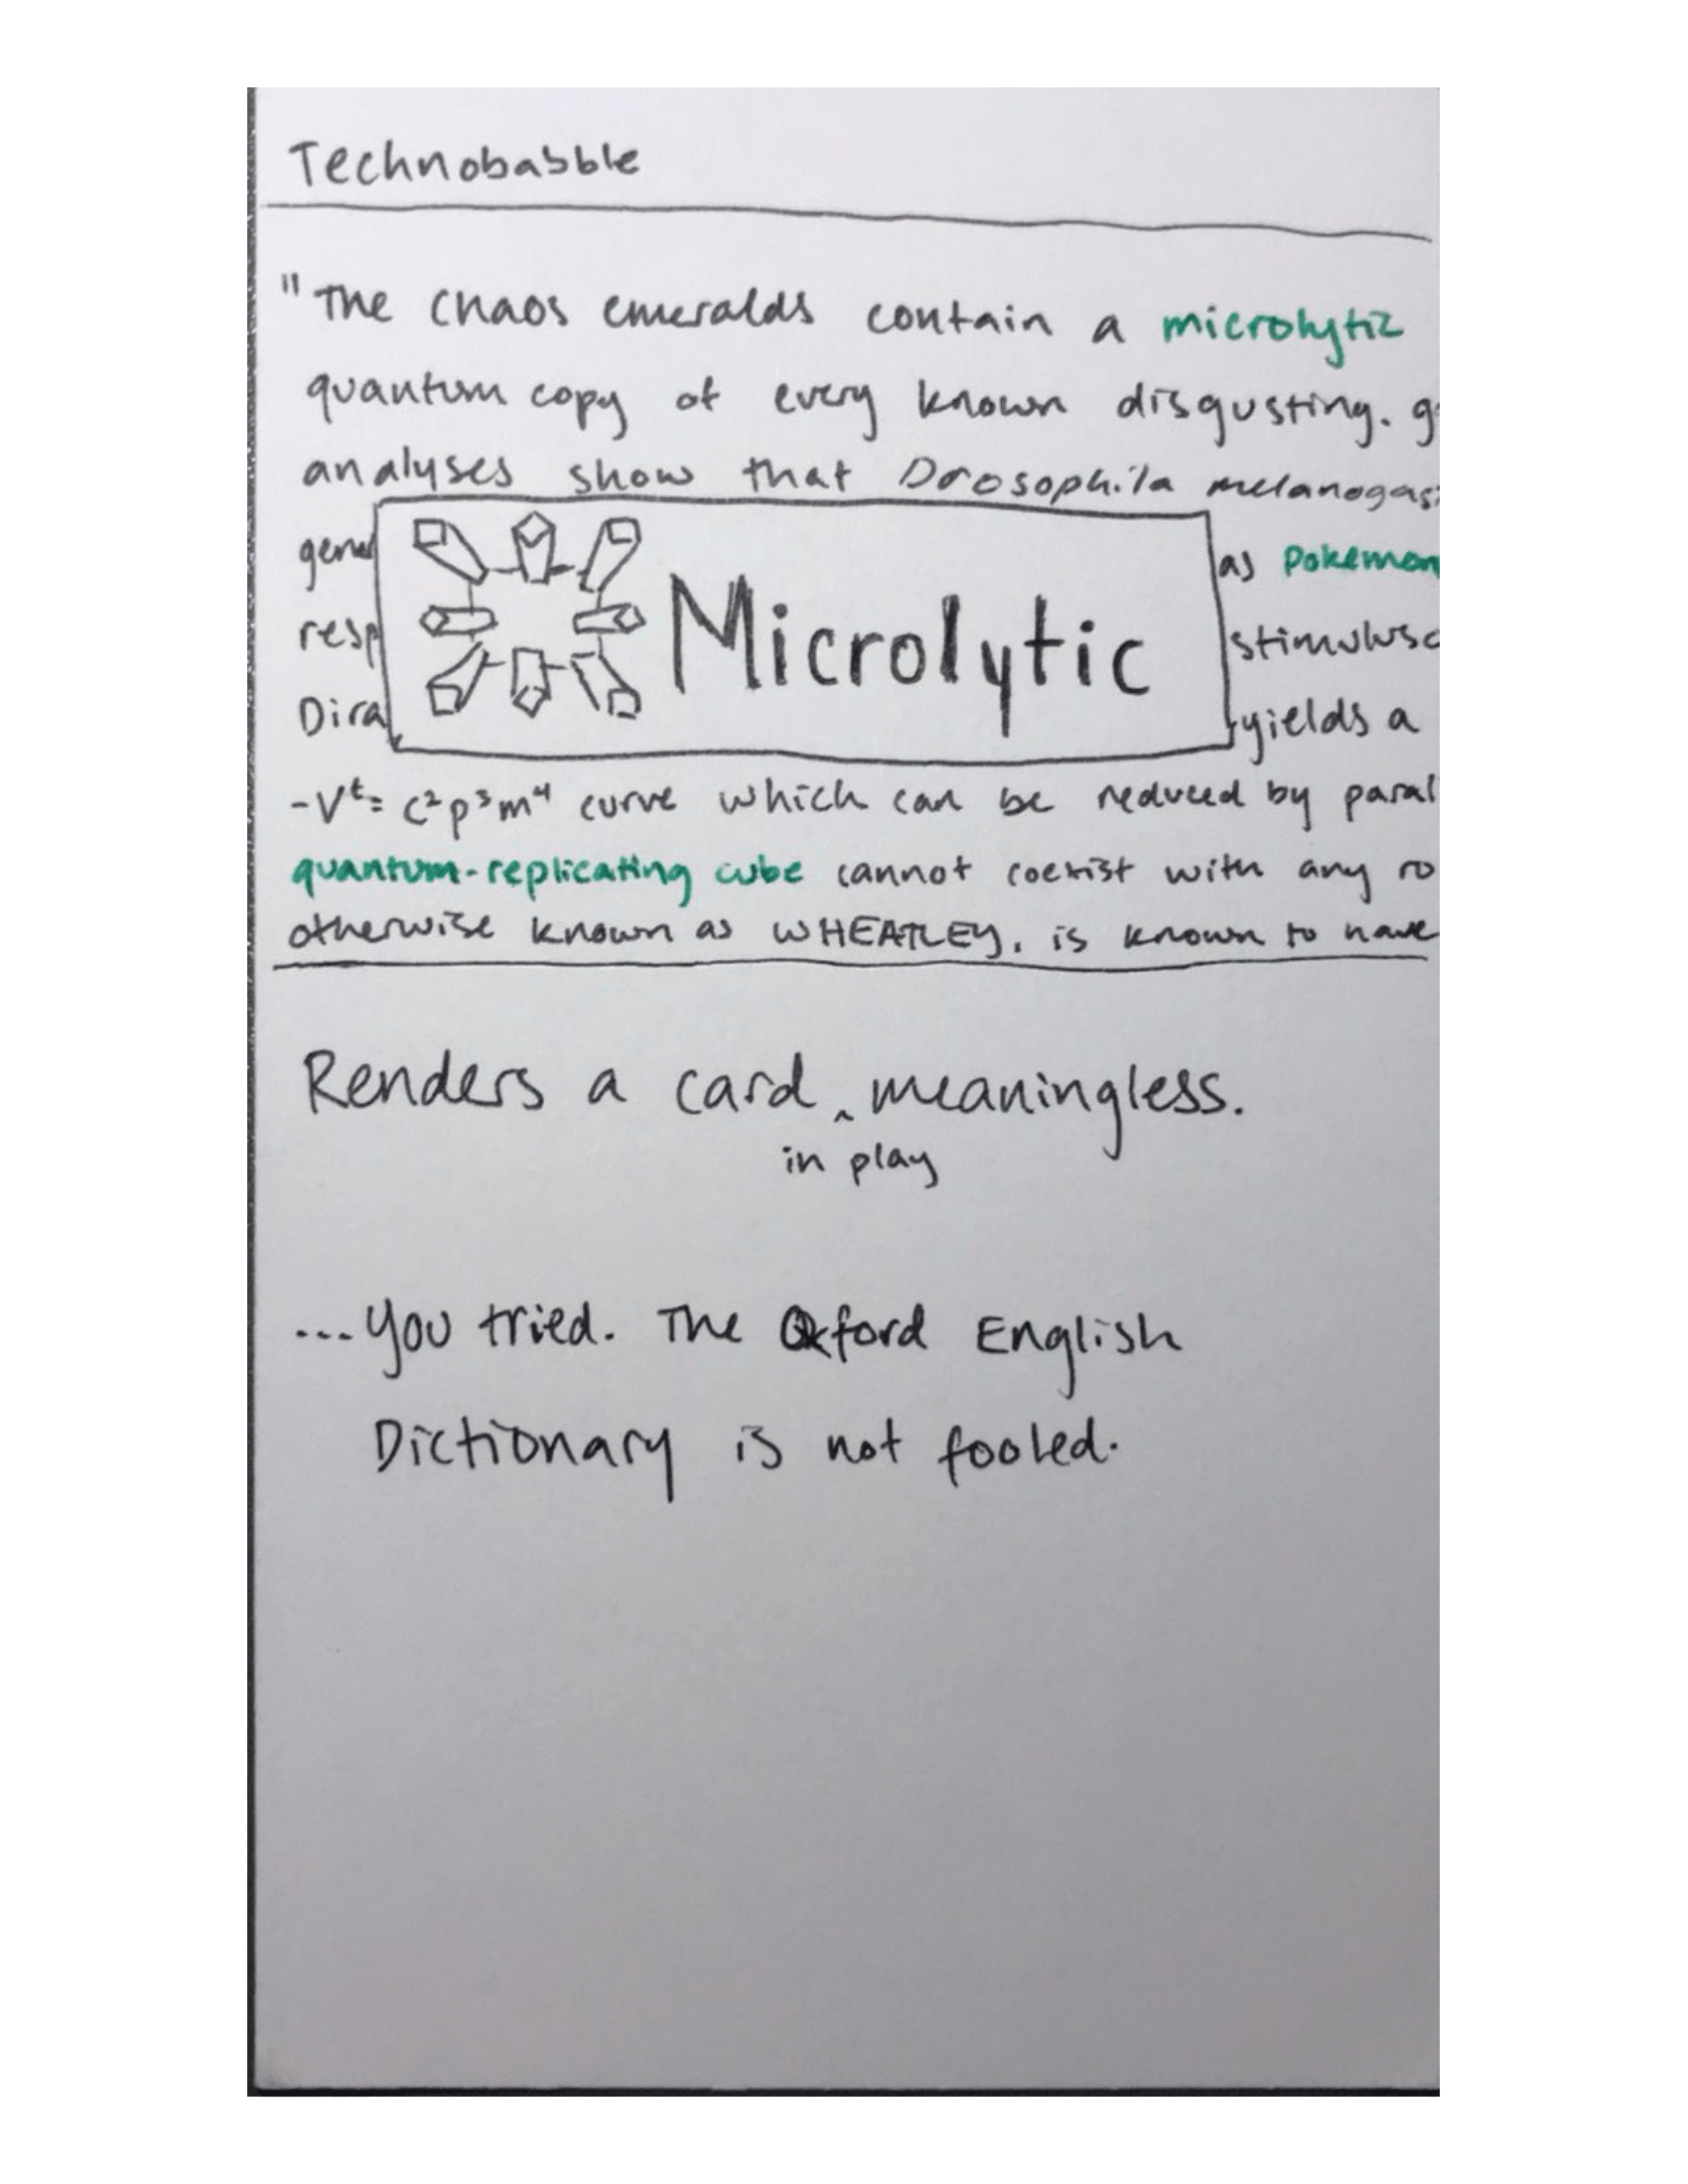 Technobabble
"The chaos emeralds contain a microlytic
quantum copy of every known disgusting. g
analyses show that Drosophila melanogas
gene as pokemon
resp stimulusc
Dira yields a
Microlytic
-Vᵗ= c²p³m⁴ curve which can be reduced by paral
quantum-replicating cube cannot coexist with any ro
otherwise known as WHEATLEY, is known to have
Renders a card ‸ meaningless.
in play
...you tried. The Oxford English
Dictionary is not fooled.